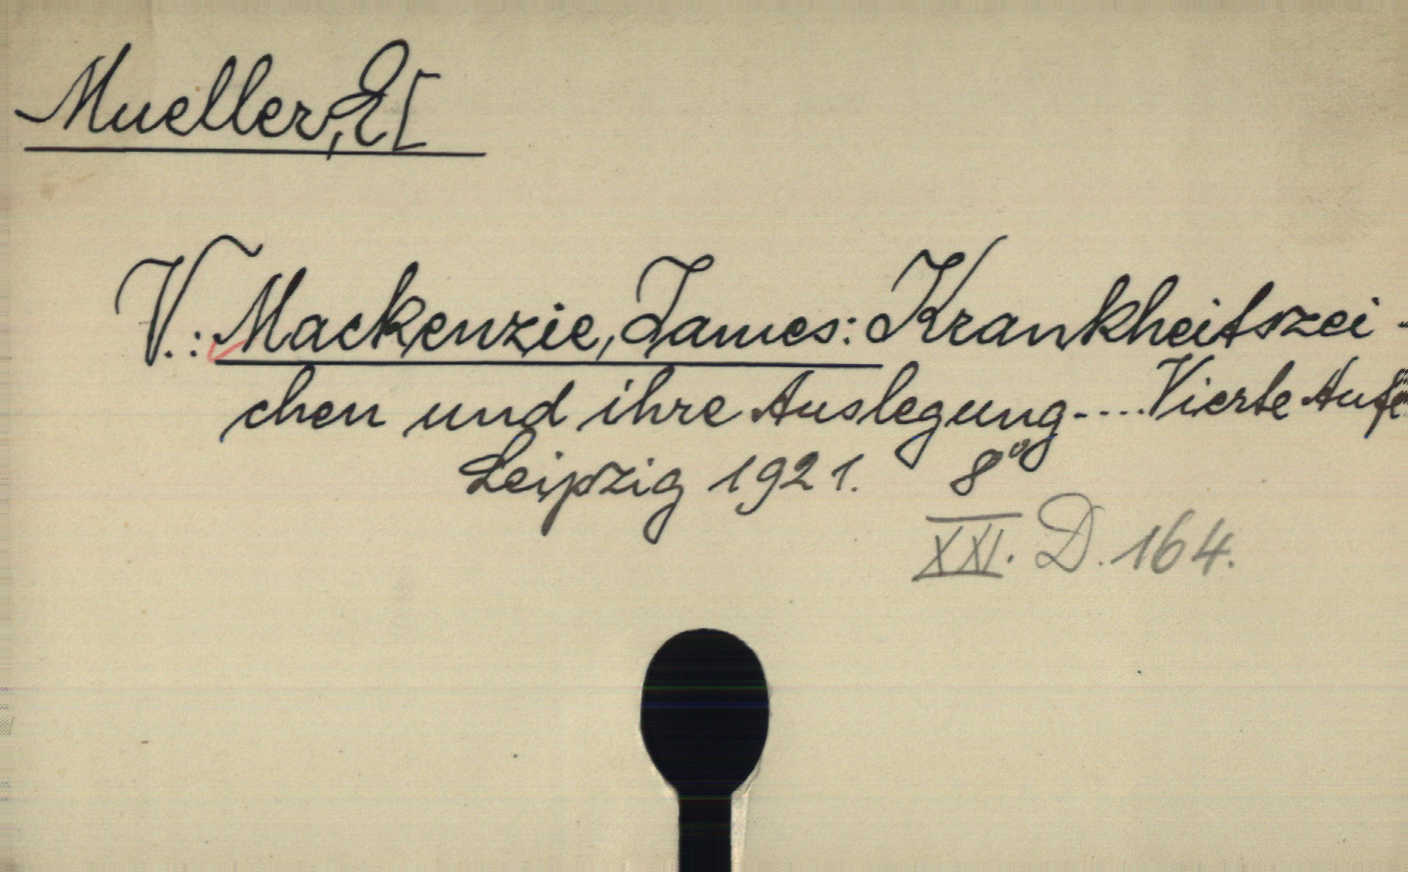 Mueller, E[
V.: Mackenzie, James: Krankheitszei-
chen und ihre Auslegung.... Vierte Aufl.
Leipzig 1921. 8°
XXI. D. 164.